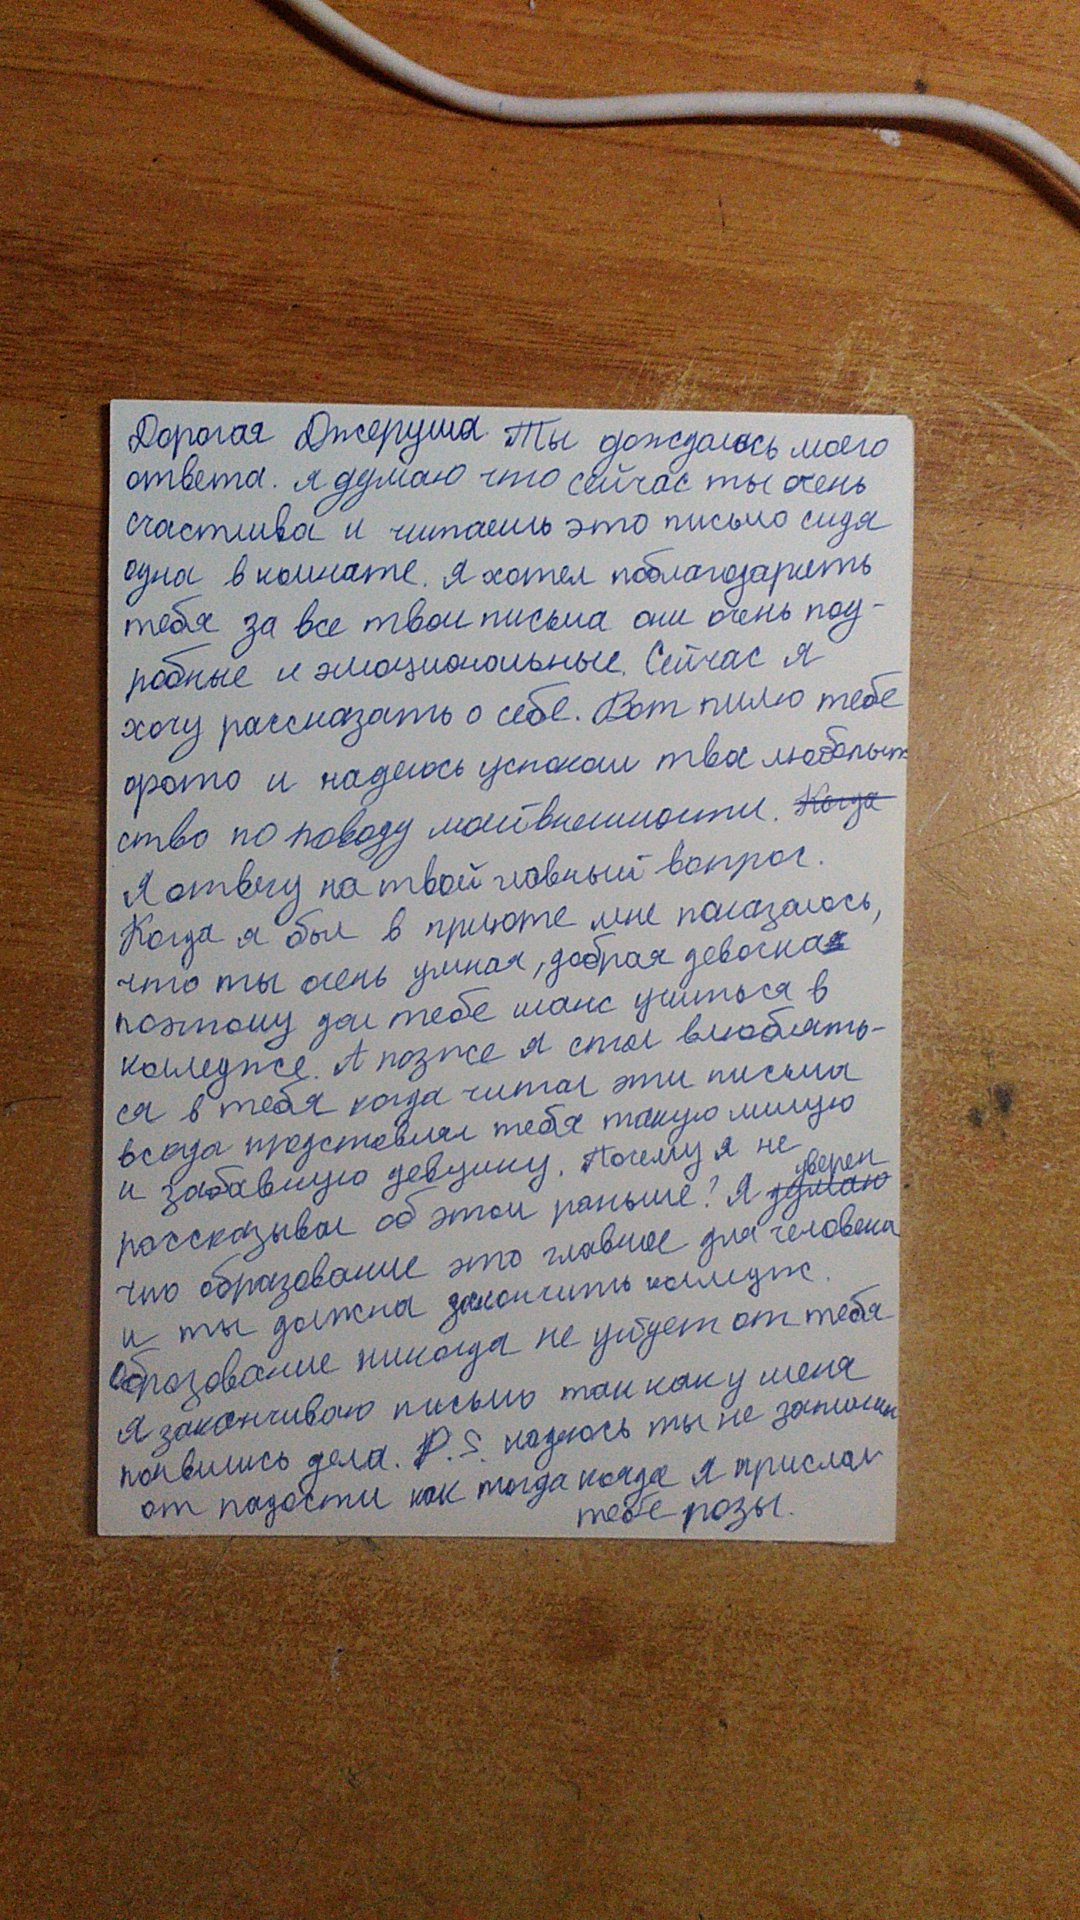 Дорогая Джеруша. Ты дождалась моего
ответа. я думаю что сейчас ты очень
счастлива и читаешь это письмо сидя
одна в комнате. Я хотел поблагодарить
тебя за все твои письма они очень под-
робные и эмоциональные. Сейчас я
хочу рассказать о себе. Вот шлю тебе
фото и надеюсь успокоил твоё любопыт
ство по поводу моей внешности. Когда
Я отвечу на твой главный вопрос.
Когда я был в приюте мне показалось,
что ты очень умная, добрая девочка
поэтому дал тебе шанс учиться в
колледже. А позже я стал влюблять-
ся в тебя когда читал эти письма
всегда представлял тебя такую милую
и забавную девушку. Почему я не
рассказывал об этом раньше? Я думаю уверен
что образование это главное для человека
и ты должна закончить колледж.
Образование никогда не уйдет от тебя
Я заканчиваю письмо так как у меня
появились дела. P.S. надеюсь ты не
от радости как тогда когда я прислал
тебе розы.